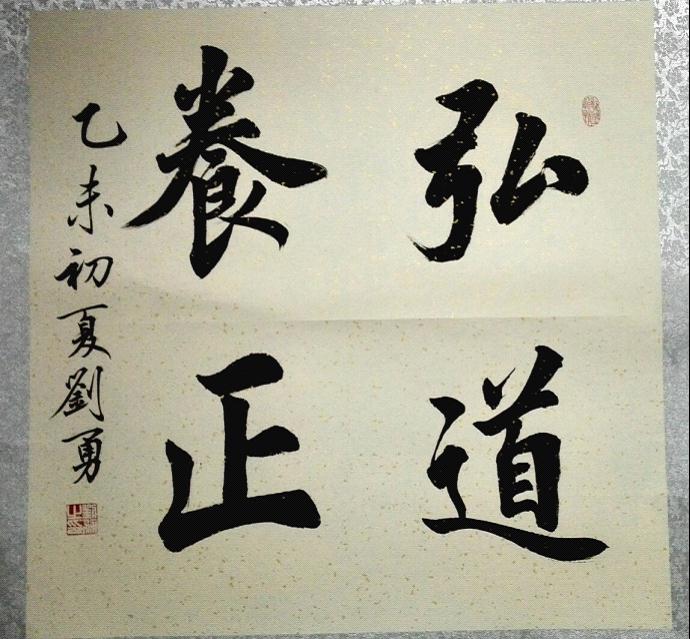 弘道
養正
乙未初夏劉勇